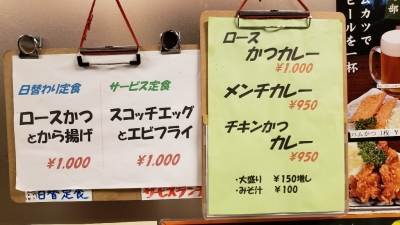 日替わり定食
ロースかつ
とから揚げ
¥1.000
サービス定食
スコッチエッグ
とエビフライ
¥1.000
日替定食
ロース
かつカレー
¥1.000
メンチカレー
¥950
チキンかつ
カレー
¥950
・大盛り ¥150増し
・みそ汁 ¥100
部
カツで
ビールを一杯
ハムかつ 1枚